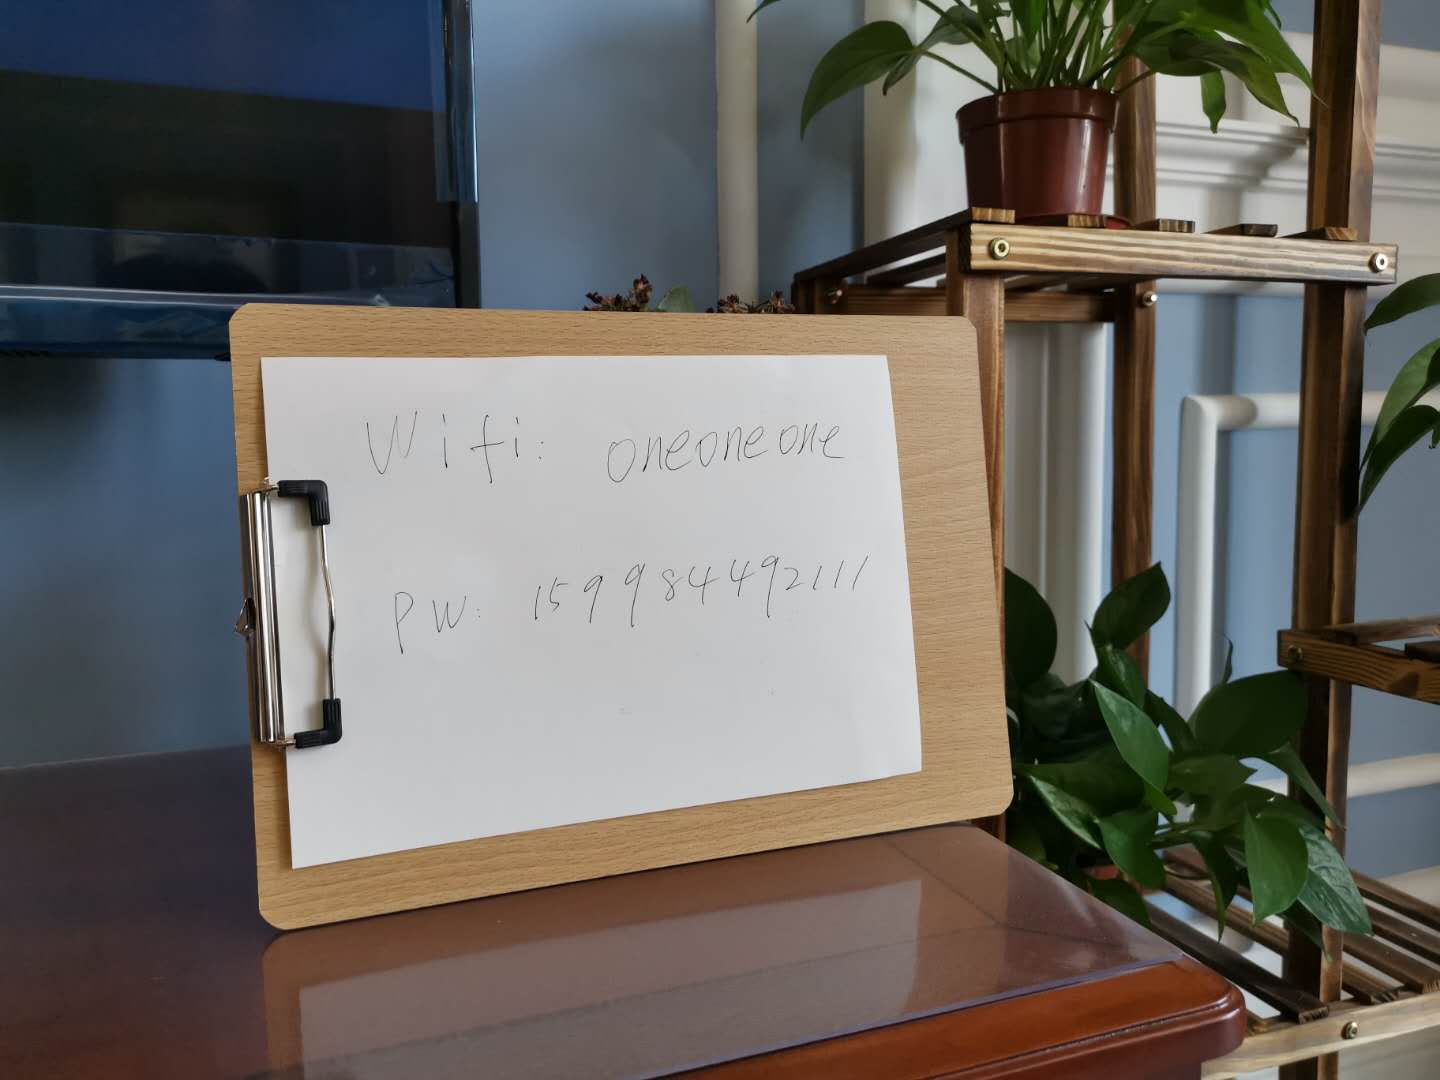 Wifi: oneoneone
PW: 159984492111